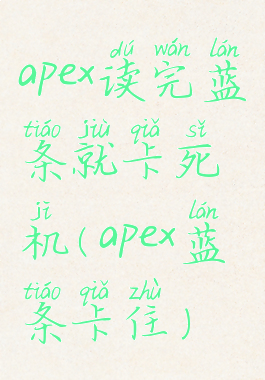 dú wán lán
apex读完蓝
tiáo jiù qiǎ sǐ
条就卡死
jī lán
机(apex蓝
tiáo qiǎ zhù
条卡住)